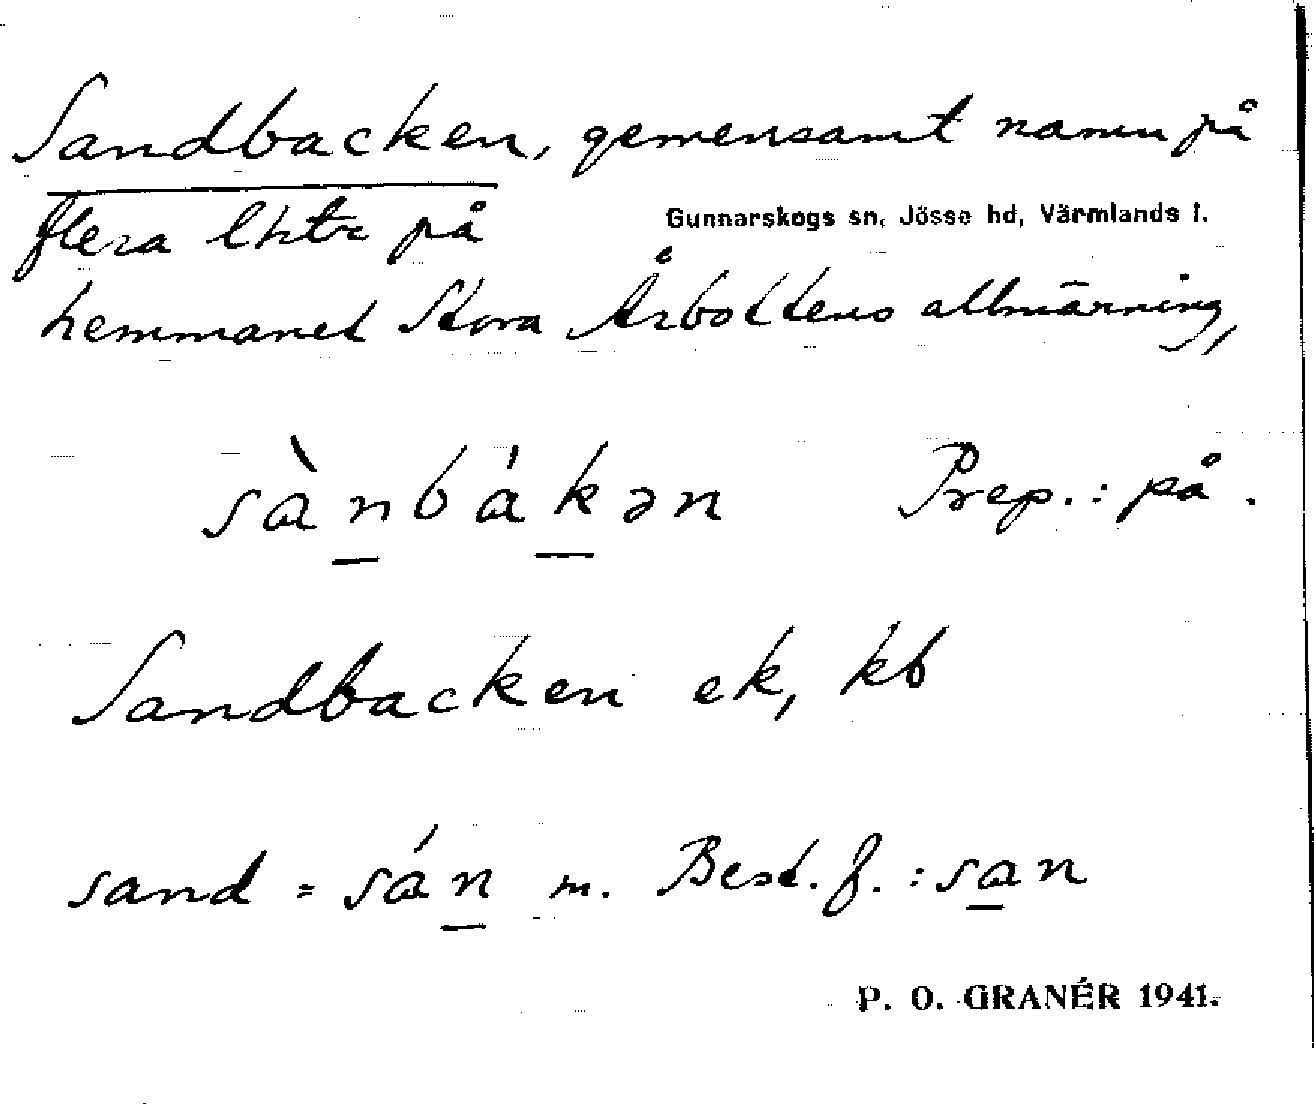 Sandbacken, gemensamt namn på
flera lhtr på
Gunnarskogs sn, Jösse hd, Värmlands l.
hemmanet Stora Årbottens allmänning,
sànbákən Prep.: på.
Sandbacken ek, kb
sand = sán m. Best. f.: san
P. O. GRANÉR 1941.